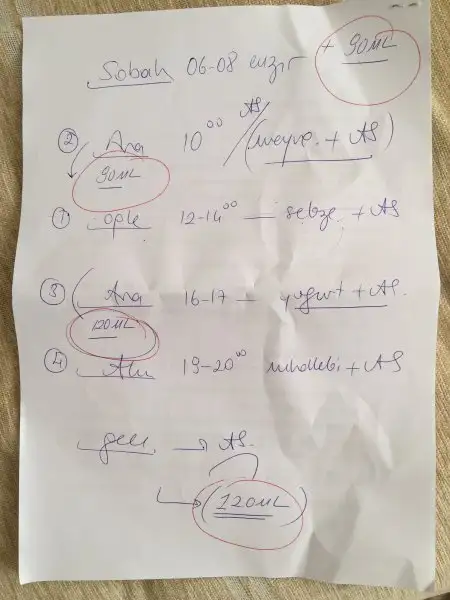 Sabah 06-08 emzir + 90ML
② Ara 10⁰⁰ AS / (meyve + AS)
90ML
① öğle 12-14⁰⁰ — sebze + AS
③ Ara 16-17 — yogurt + AS.
120ML
④ Akş 19-20⁰⁰ muhallebi + AS
gece → AS.
(120ML)